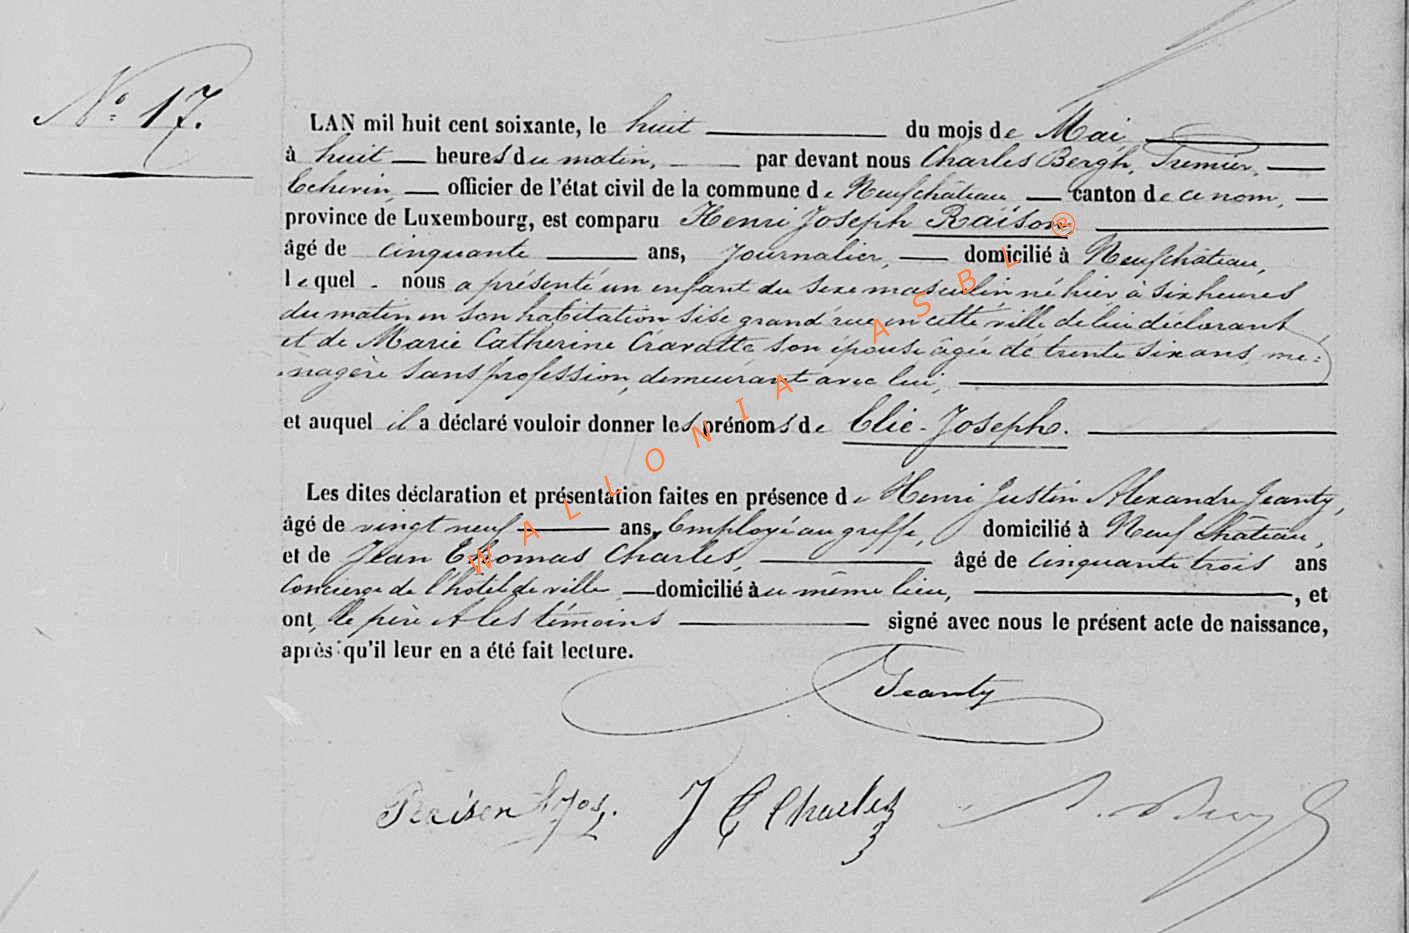 N° 17.
LAN mil huit cent soixante, le huit du mois de Mai
à huit heures du matin, par devant nous Charles Bergh, Premier,
Echevin, officier de l'état civil de la commune de Neufchâteau, canton de ce nom,
province de Luxembourg, est comparu Henri Joseph Raison
âgé de cinquante ans, journalier, domicilié à Neufchâteau,
lequel nous a présenté un enfant du sexe masculin né hier à six heures
du matin en son habitation sise grand'rue en cette ville de lui déclarant
et de Marie Catherine Cravatte, son épouse âgée de trente six ans, mé=
nagère sans profession, demeurant avec lui,
et auquel il a déclaré vouloir donner les prénoms de Elie-Joseph.
Les dites déclaration et présentation faites en présence de Henri Justin Alexandre Jeanty,
âgé de vingt neuf ans, Employé au greffe, domicilié à Neufchâteau,
et de Jean Thomas Charles, âgé de cinquante trois ans
Concierge de l'hôtel de ville domicilié au même lieu, , et
ont, le père et les témoins signé avec nous le présent acte de naissance,
après qu'il leur en a été fait lecture.
Jeanty
Raison hjos. J T Charles
WALLONIA ASBL ®